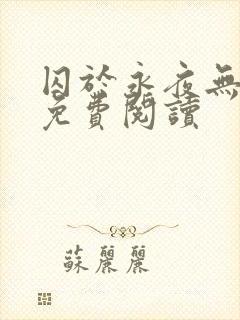 囚於永夜無
免費閱讀
蘇麗麗